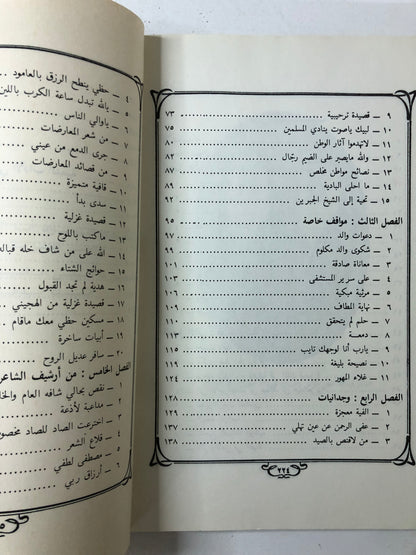 ٩ – قصيدة ترحيبية ٧٣
١٠ – لبيك ياصوت ينادي المسلمين ٧٥
١١ – لاتهدموا آثار الوطن ٨٠
١٢ – والله مايصبر على الضيم رجّال ٨٢
١٣ – نصائح مواطن مخلص ٨٧
١٤ – ما احلى البادية ٨٩
١٥ – تحية إلى الشيخ الجبرين ٩٢
الفصل الثالث : مواقف خاصة ٩٥
١ – دعوات والد ٩٧
٢ – شكوى والد مكلوم ٩٩
٣ – معاناة صادقة ١٠١
٤ – على سرير المستشفى ١٠٣
٥ – مرثية مبكية ١٠٦
٦ – نهاية المطاف ١٠٩
٧ – حلم لم يتحقق ١١٠
٨ – دمعـــة ١١٣
٩ – يارب أنا لوجهك تايب ١١٥
١٠ – نصيحة بليغة ١١٩
١١ – غلاء المهور ١٢٤
الفصل الرابع : وجدانيات ١٢٨
١ – الفية معجزة ١٢٩
٢ – عفى الرحمن عن عين تهلي ١٣٧
٣ – من لاقنص بالصيد ١٣٨
٢٢٤
٤ – حظي ينطح الرزق بالعامود
٥ – يالله تبدل ساعة الكرب باللين
٦ – ياوالي الناس
٧ – من شعر المعارضات
٨ – جرى الدمع من عيني
٩ – من قصائد المعارضات
١٠ – قافية متميزة
١١ – سدى بدأ
١٢ – قصيدة غزلية
١٣ – ماكتب باللوح
١٤ – الله على من شاف خله قباله
١٥ – حوائج الشتاء
١٦ – هدية لم تجد القبول
١٧ – قصيدة غزلية من الهجيني
١٨ – مسكين حظي معك ماقام
١٩ – أبيات ساخرة
٢٠ – سافر عديل الروح
الفصل الخامس : من أرشيف الشاعر
١ – نقص بحالي شافه العام والخا
٢ – مداعبة لاذعة
٣ – اخترعت الصاد للصاد مخصوص
٤ – قلاع الشعر
٥ – مصطفى لطفي
٦ – أرزاق ربي